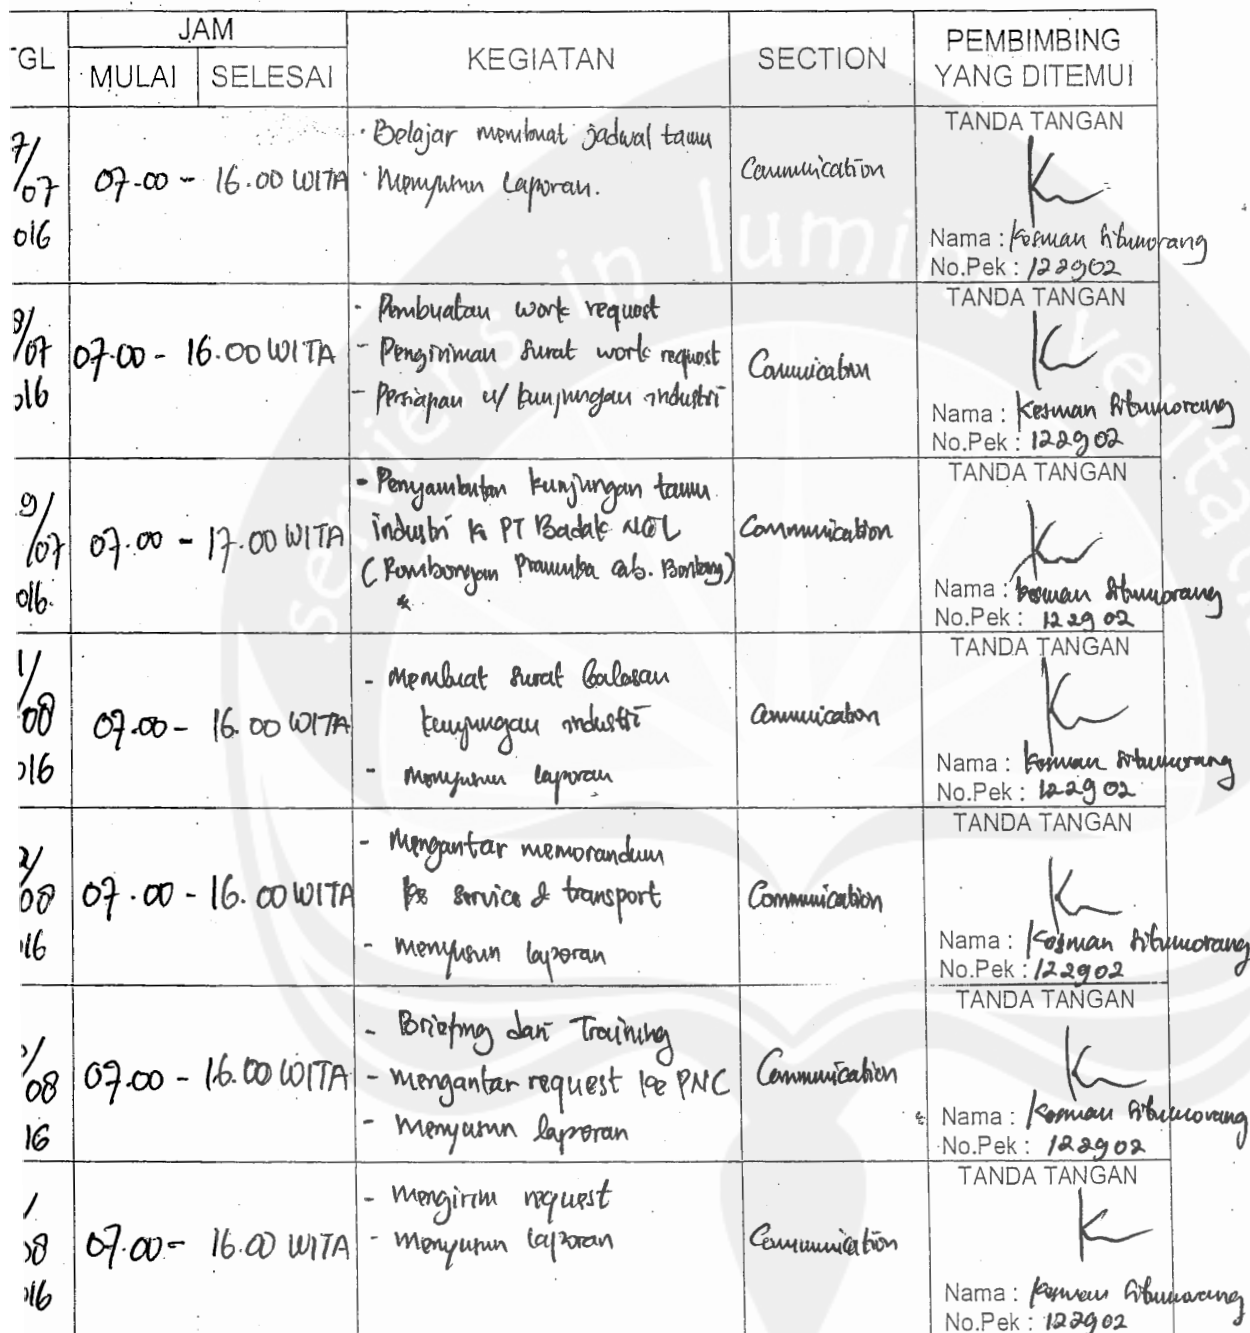 JAM
TGL MULAI SELESAI KEGIATAN SECTION PEMBIMBING YANG DITEMUI
7/07 016 07.00 - 16.00 WITA
· Belajar membuat jadwal tamu
· Menyusun Laporan.
Communication
TANDA TANGAN
Nama : Kosman Situmorang
No.Pek : 122902
8/07 016 07.00 - 16.00 WITA
- Pembuatan work request
- Pengiriman surat work request
- Persiapan u/ kunjungan industri
Communication
TANDA TANGAN
Nama : Kosman Situmorang
No.Pek : 122902
9/07 016. 07.00 - 17.00 WITA
- Penyambutan kunjungan tamu
industri ke PT Badak NGL
(Rombongan Pramuka cab. Bontang)
Communication
TANDA TANGAN
Nama : Kosman Situmorang
No.Pek : 122902
1/08 016 07.00 - 16.00 WITA
- Membuat surat balasan
kunjungan industri
- menyusun laporan
Communication
TANDA TANGAN
Nama : Kosman Situmorang
No.Pek : 122902
2/08 016 07.00 - 16.00 WITA
- Mengantar memorandum
ke service & transport
- menyusun laporan
Communication
TANDA TANGAN
Nama : Kosman Situmorang
No.Pek : 122902
/08 16 07.00 - 16.00 WITA
- Briefing dan Training
- mengantar request ke PNC
- menyusun laporan
Communication
TANDA TANGAN
Nama : Kosman Situmorang
No.Pek : 122902
/08 016 07.00 - 16.00 WITA
- mengirim request
- menyusun laporan
Communication
TANDA TANGAN
Nama : Kosman Situmorang
No.Pek : 122902
serviens in lumine veritatis